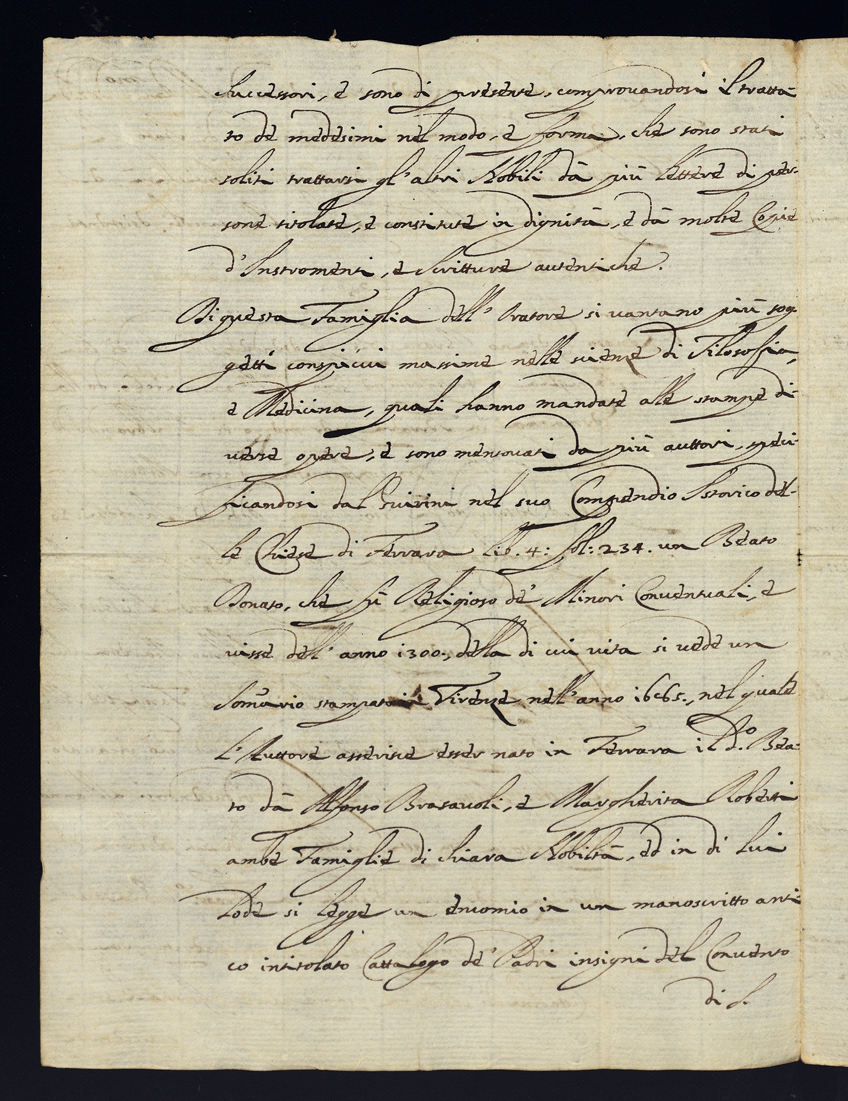 Successori, e sono di presente, comprovandosi il tratta-
to de medesimi nel modo, e forma, che sono stati
soliti trattarsi gl'altri Nobili dà più lettere di per-
sone titolate, e constitute in dignità, e dà molte Copie
d'Instromenti, e Scritture autentiche.
Di questa Famiglia dell'Oratore si vantano più sog-
getti conspicui massime nelle scienze di Filosofia,
e Medicina, quali hanno mandate alle stampe di-
verse opere, e sono mentovati da più auttori, speci-
ficandosi dal Guirini nel suo Compendio Istorico del-
le Chiese di Ferrara lib. 4: fol: 234. un Beato
Donato, che fù Religioso de' Minori Conventuali, e
visse dell'anno 1300., della di cui vita si vede un
Som̃ario stampato in Firenze nell'anno 1665., nel quale
l'Auttore asserisce esser nato in Ferrara il d.º Bea-
to dà Alfonso Brasavoli, e Margherita Roberti
ambe Famiglie di chiara Nobiltà, ed in di lui
lode si legge un encomio in un manoscritto anti-
co intitolato Cattalogo de' Padri insigni del Convento
di S.